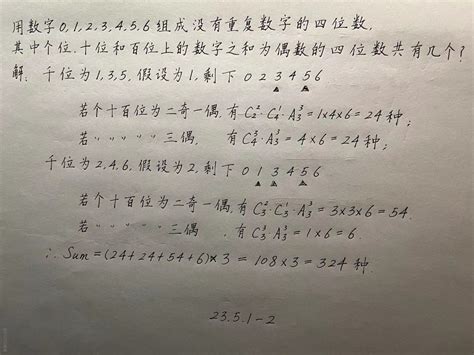 用数字0,1,2,3,4,5,6组成没有重复数字的四位数,
其中个位、十位和百位上的数字之和为偶数的四位数共有几个?
解. 千位为1,3,5, 假设为1, 剩下 0 2 3 4 5 6
若个十百位为二奇一偶, 有 C₂²·C₄¹·A₃³=1×4×6=24种;
若 〃 〃 〃 〃 三偶, 有 C₄³·A₃³=4×6=24种;
千位为2,4,6, 假设为2, 剩下 0 1 3 4 5 6
若个十百位为二奇一偶, 有 C₃²·C₃¹·A₃³=3×3×6=54.
若 〃 〃 〃 〃 三偶. 有 C₃³·A₃³=1×6=6.
∴ Sum=(24+24+54+6)×3=108×3=324种.
23.5.1-2